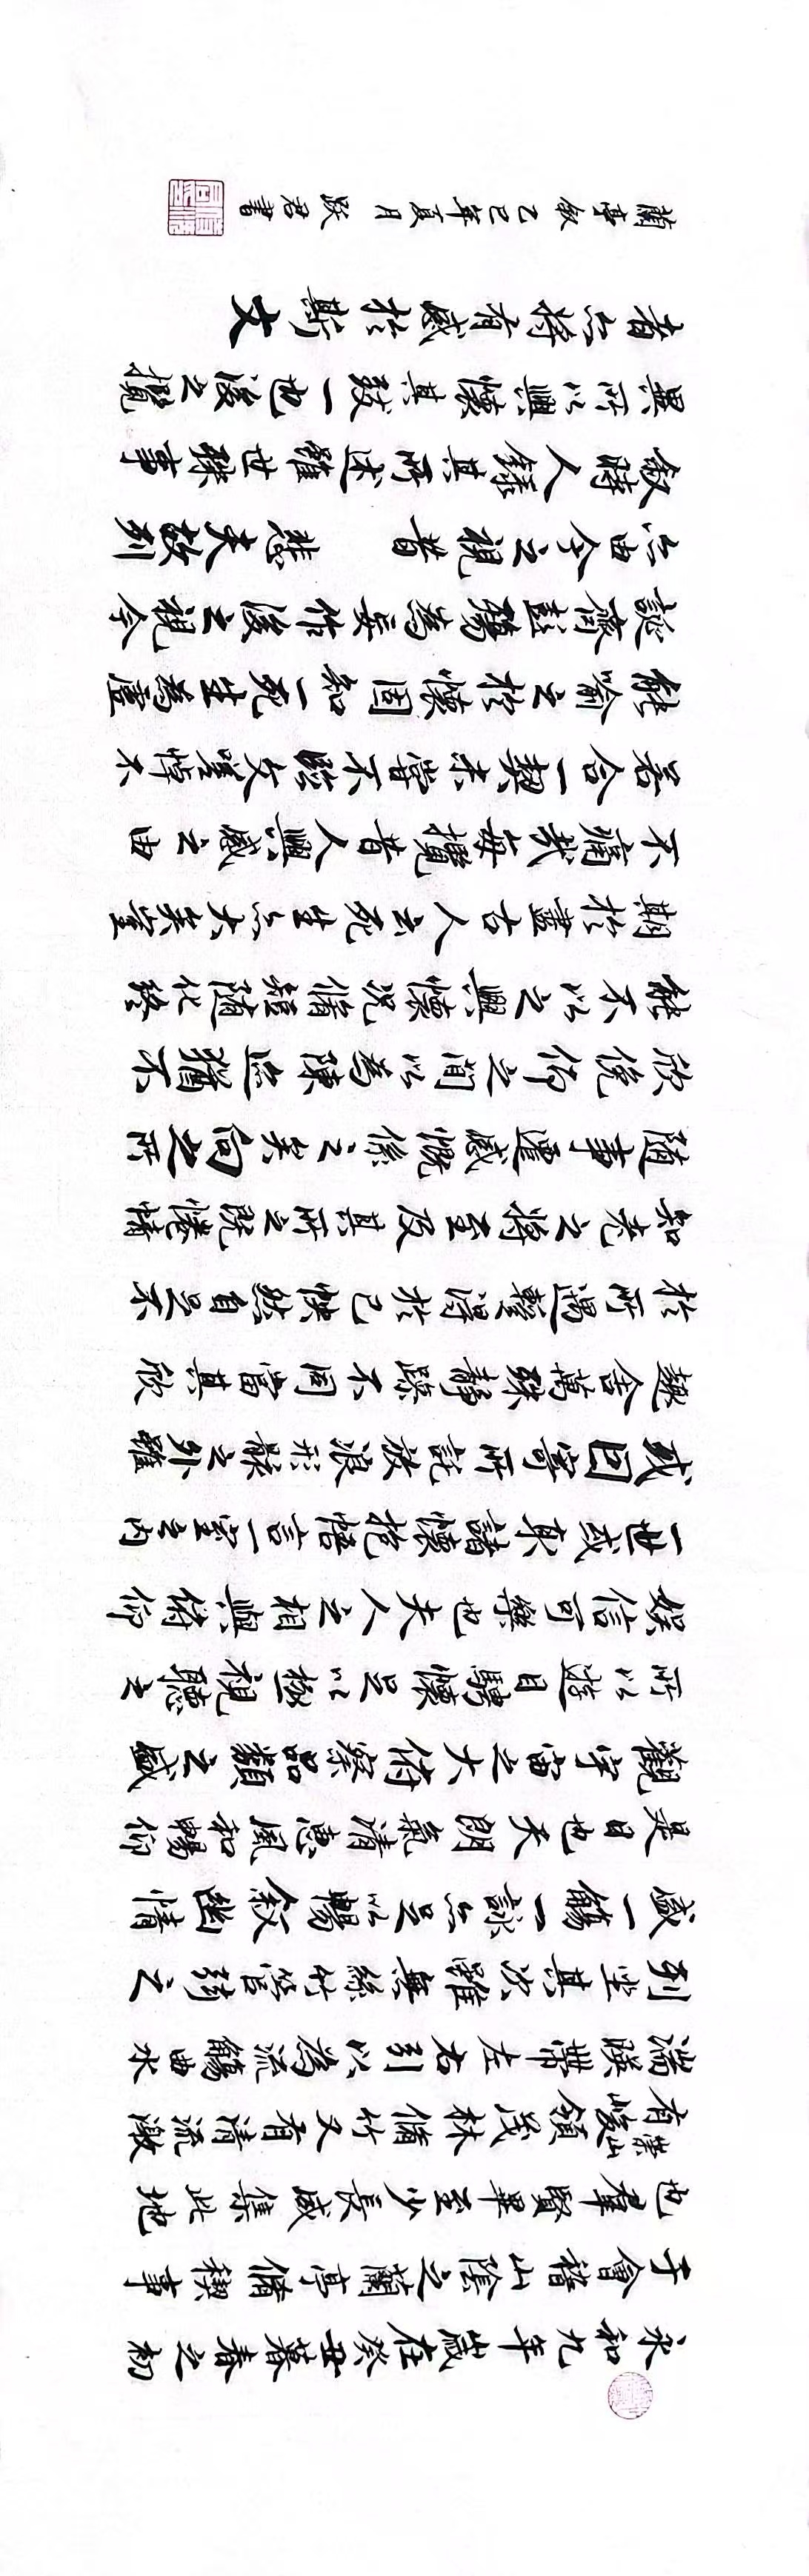 永和九年歲在癸丑暮春之初
于會稽山陰之蘭亭脩禊事
也羣賢畢至少長咸集此地
有崇山峻領茂林脩竹又有清流激
湍暎帶左右引以為流觴曲水
列坐其次雖無絲竹管弦之
盛一觴一詠亦足以暢敘幽情
是日也天朗氣清惠風和暢仰
觀宇宙之大俯察品類之盛
所以遊目騁懷足以極視聽之
娛信可樂也夫人之相與俯仰
一世或取諸懷抱悟言一室之內
或因寄所託放浪形骸之外雖
趣舍萬殊靜躁不同當其欣
於所遇暫得於己怏然自足不
知老之將至及其所之既惓情
隨事遷感慨係之矣向之所
欣俛仰之間以為陳迹猶不
能不以之興懷況脩短隨化終
期於盡古人云死生亦大矣豈
不痛哉每攬昔人興感之由
若合一契未嘗不臨文嗟悼不
能喻之於懷固知一死生為虛
誕齊彭殤為妄作後之視今
亦由今之視昔 悲夫故列
敘時人錄其所述雖世殊事
異所以興懷其致一也後之攬
者亦將有感於斯文
蘭亭敘乙巳年夏月 跃君書